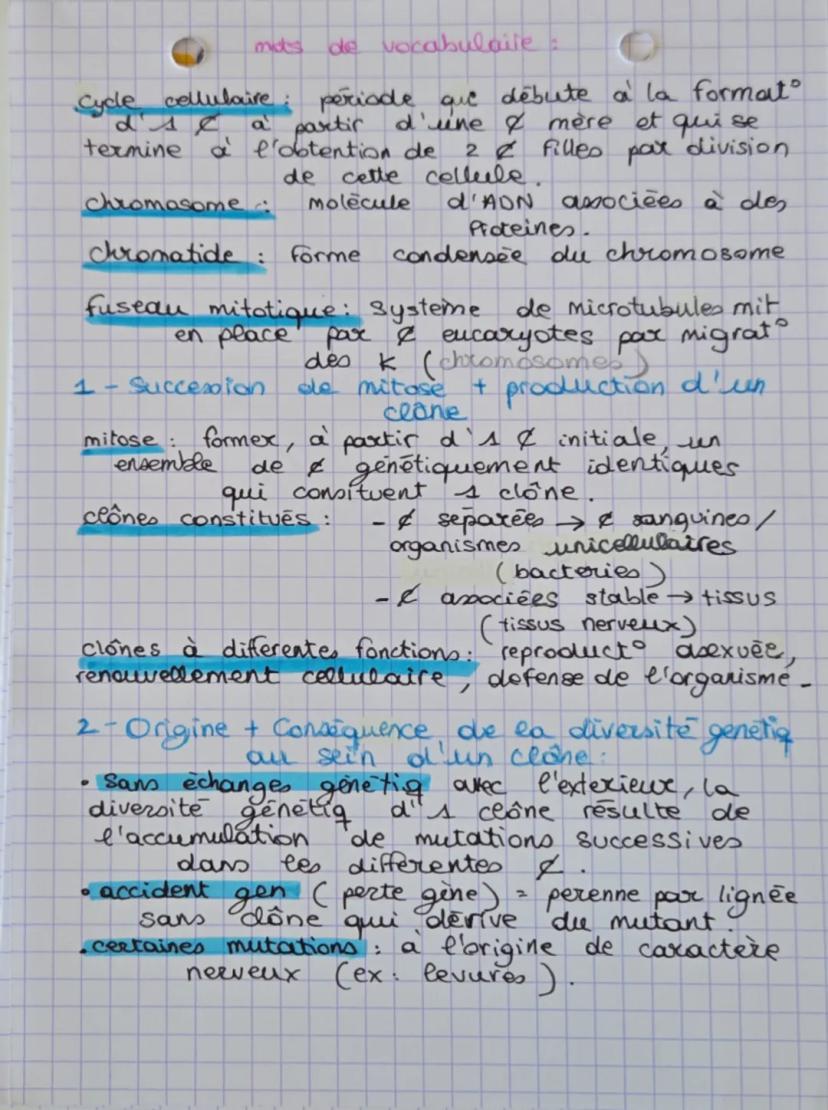 mots de vocabulaire :
cycle cellulaire : période qui débute à la format°
d'1 ₵ à partir d'une ₵ mère et qui se
termine à l'obtention de 2 ₵ filles par division
de cette cellule.
chromosome : molécule d'ADN associées à des
Proteines.
chromatide : forme condensée du chromosome
fuseau mitotique : système de microtubules mit
en place par ₵ eucaryotes par migrat°
des K (chromosomes)
1 - Succession de mitose + production d'un
clône
mitose : former, à partir d'1 ₵ initiale, un
ensemble de ₵ génétiquement identiques
qui consituent 1 clône.
clônes constitués : - ₵ séparées → ₵ sanguines /
organismes unicellulaires
(bacteries)
- ₵ associées stable → tissus
(tissus nerveux)
clônes à differentes fonctions : reproduct° asexuée,
renouvellement cellulaire, défense de l'organisme -
2 - Origine + Conséquence de la diversité genétiq
au sein d'un clône :
• Sans échanges génétiq avec l'exterieur, la
diversité génétiq d'1 clône résulte de
l'accumulation de mutations successives
dans les différentes ₵.
• accident gen (perte gène) = perenne par lignée
sans clône qui dérive du mutant.
• certaines mutations : à l'origine de caractère
nerveux (ex : levures).